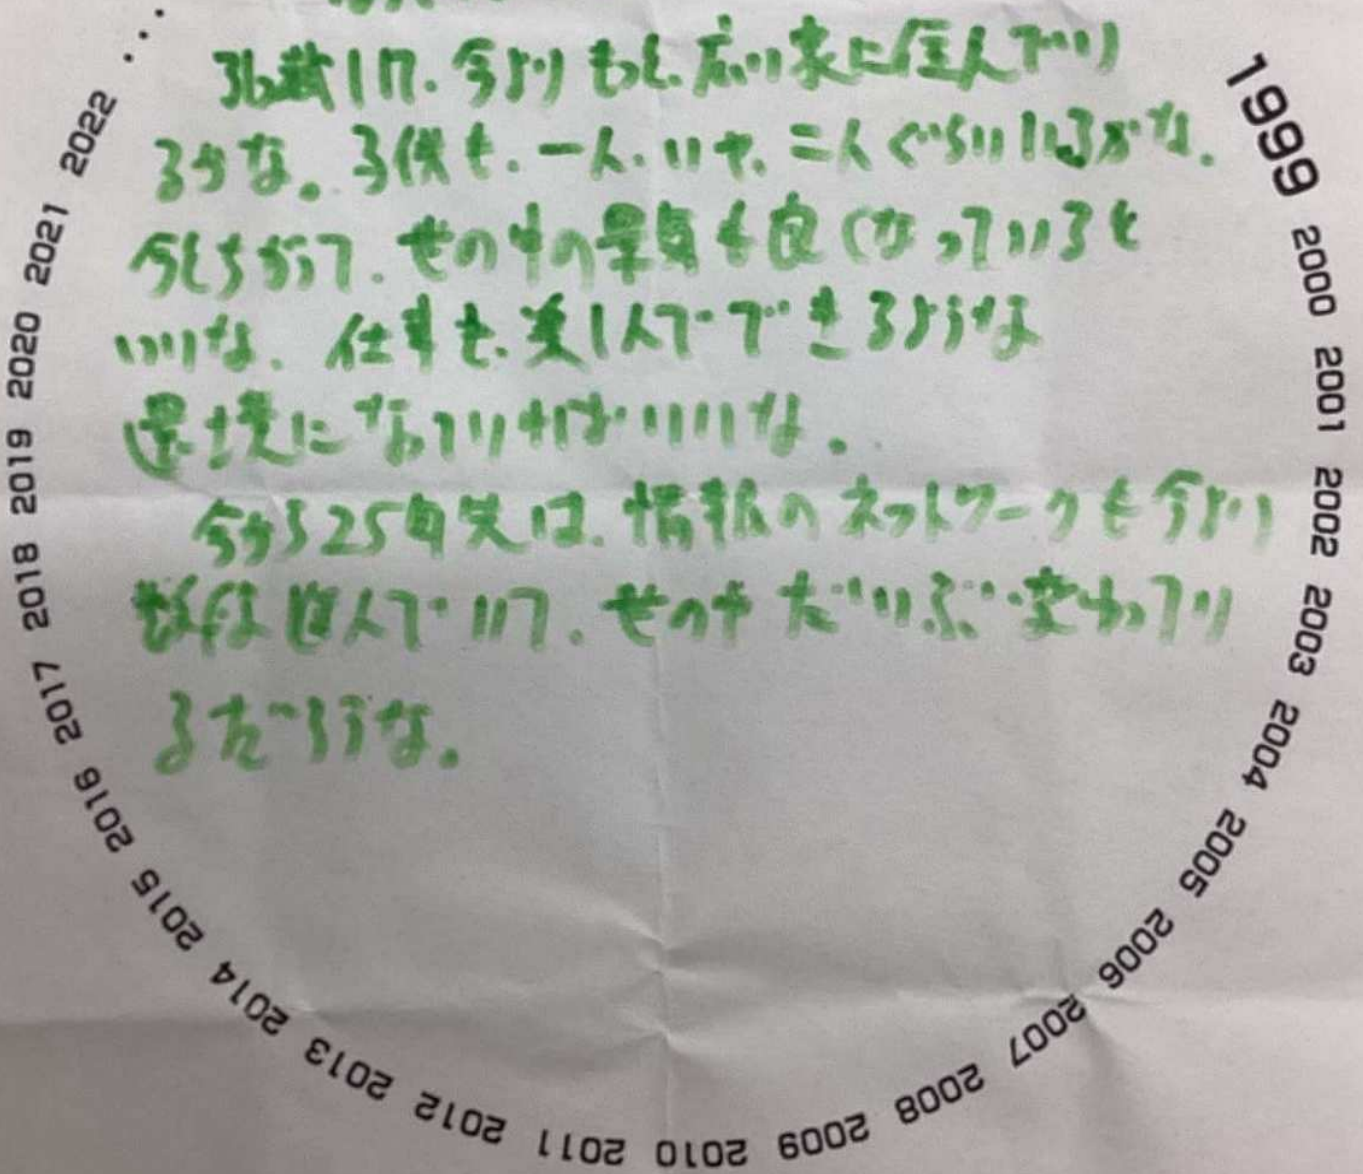 36歳か、今よりもっと、広い家に住んでい
るかな。子供も、一人、いや、二人ぐらいいるかな。
今とちがって、世の中の景気も良くなっていると
いいな。仕事も、楽しんでできるような
環境になっていればいいな。
今から25年先は、情報のネットワークも今より
数段進んでいて、世の中だいぶ変わってい
るだろうな。
1999 2000 2001 2002 2003 2004 2005 2006 2007 2008 2009 2010 2011 2012 2013 2014 2015 2016 2017 2018 2019 2020 2021 2022 ...